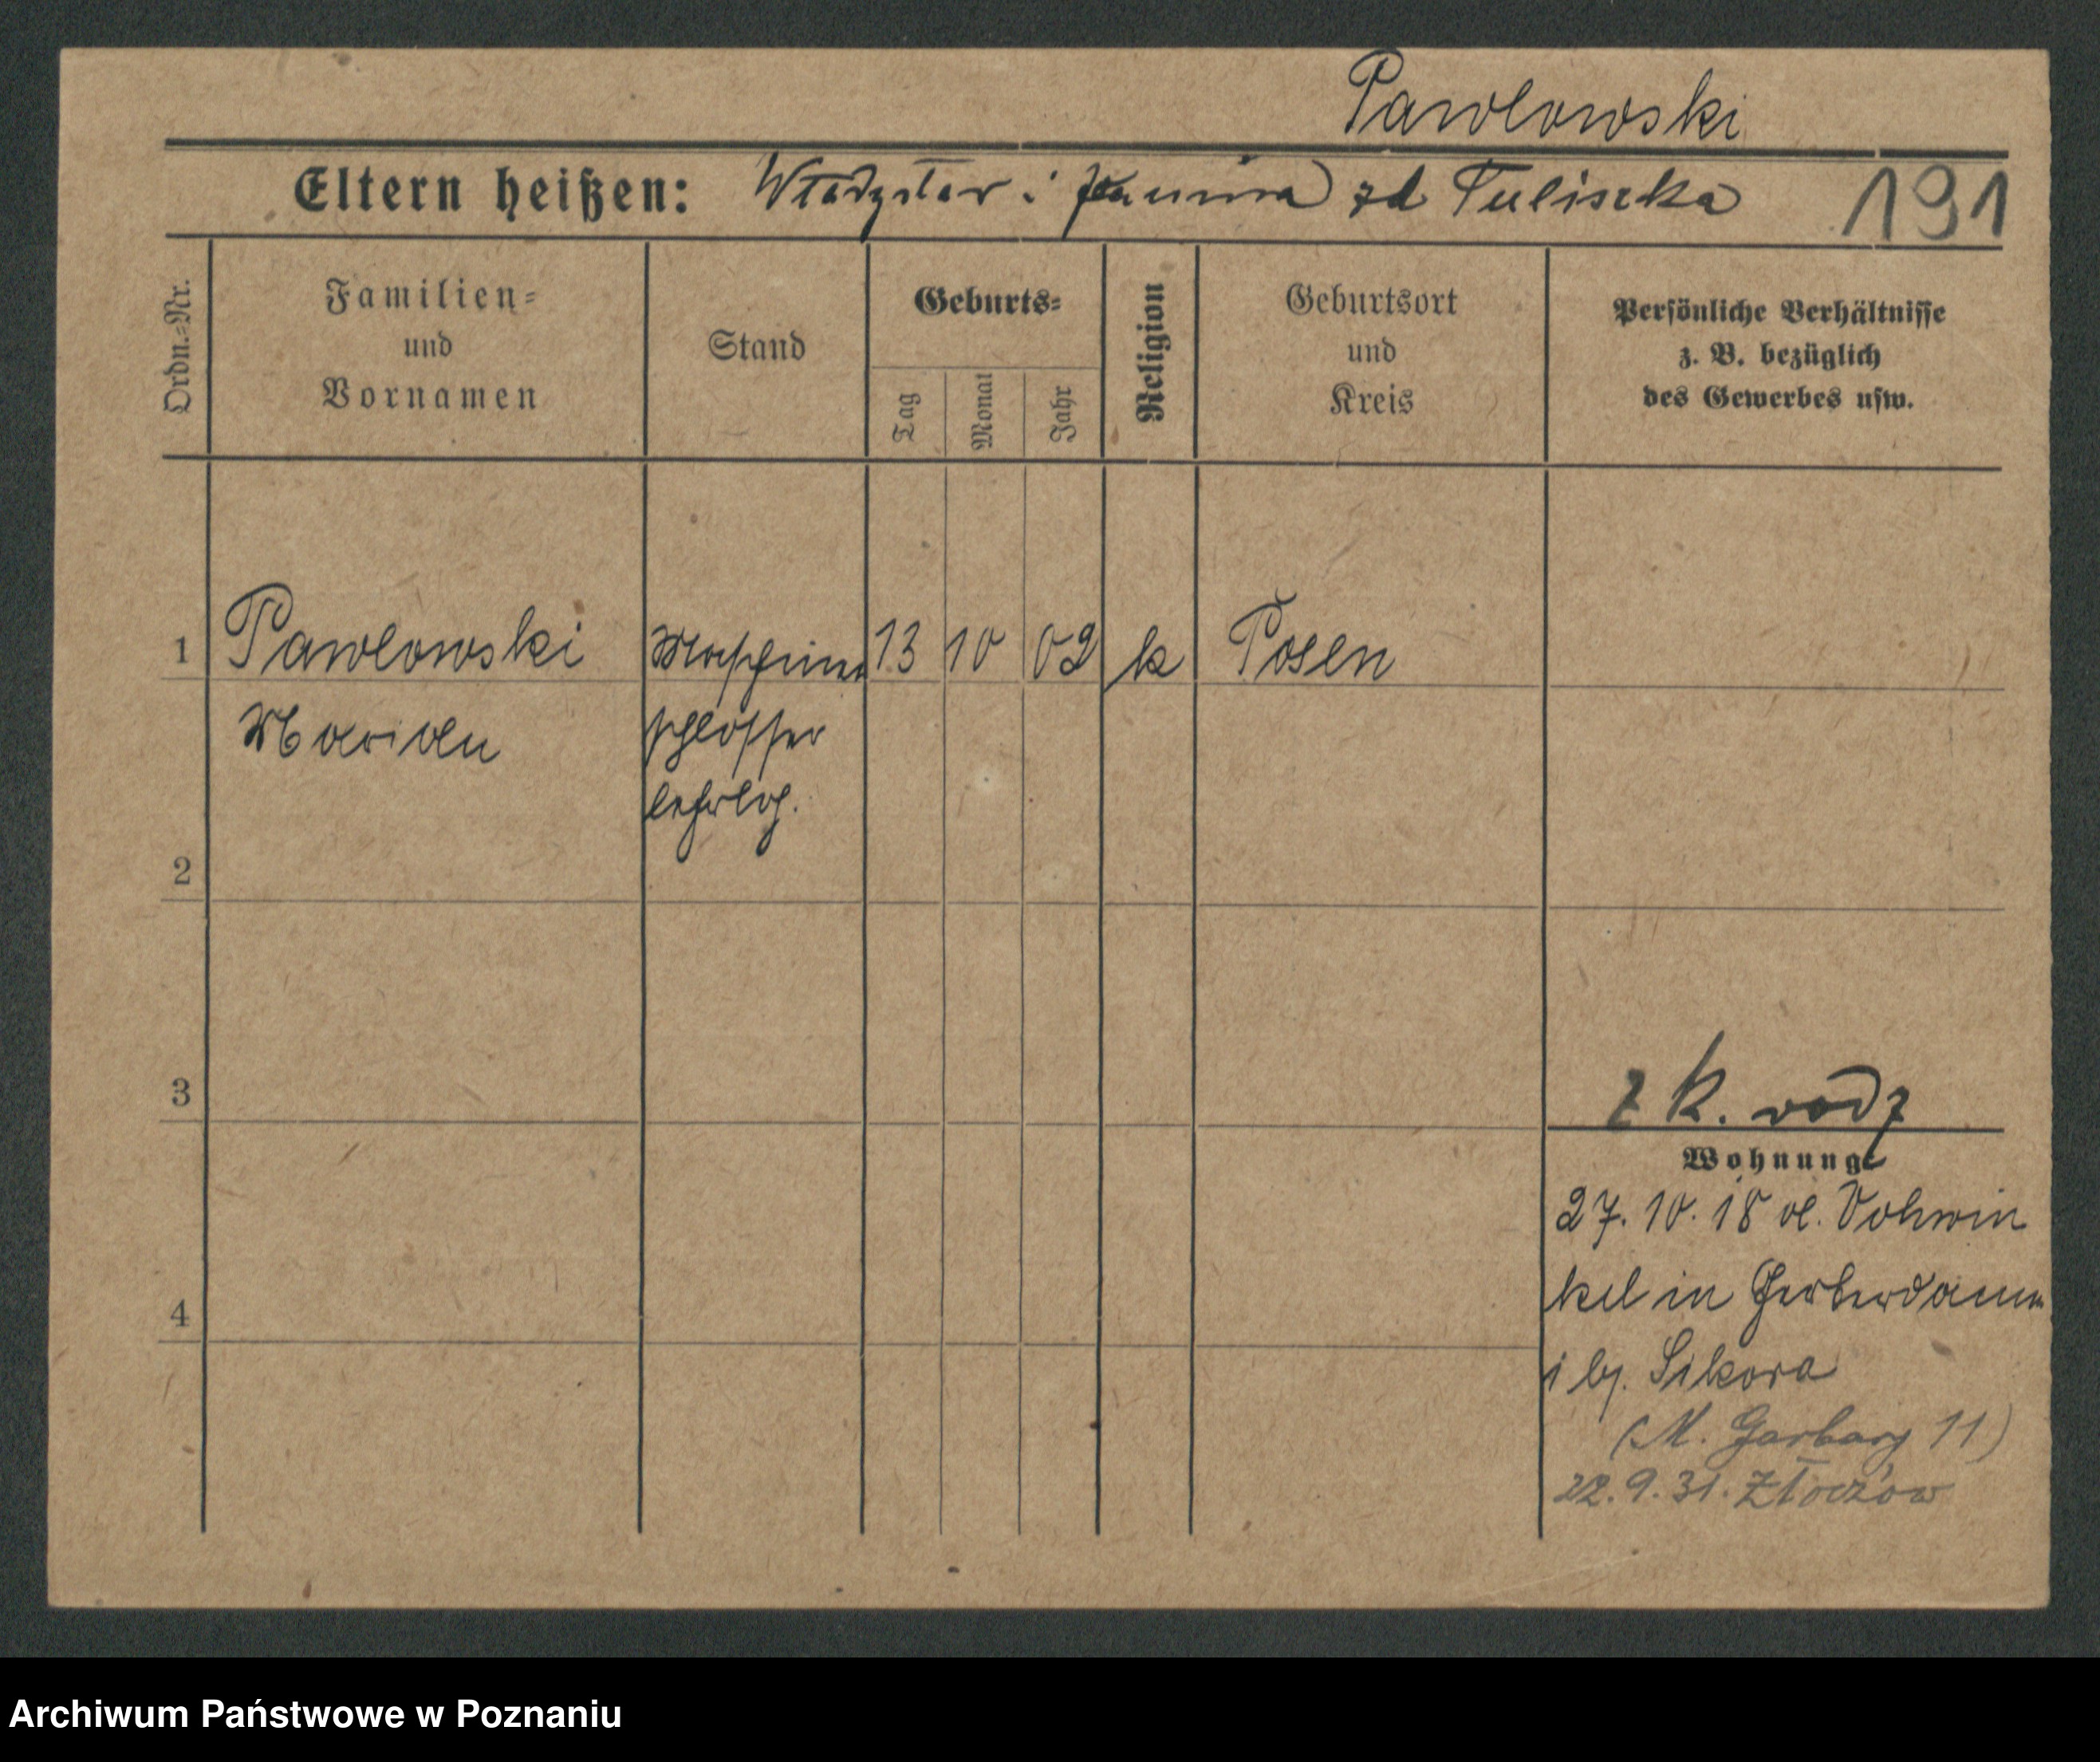 Pawlowski
Eltern heißen: Władysław i Joanna zd Tuliszka 191
Ordn.=Nr.
Familien=
und
Vornamen
Stand
Geburts=
Tag
Monat
Jahr
Religion
Geburtsort
und
Kreis
Persönliche Verhältnisse
z. B. bezüglich
des Gewerbes usw.
1 Pawlowski Maschinen 13 10 02 k Posen
Marian schlosser
lehrlg.
2
3
z k. rodz
4
Wohnung
27. 10. 18 a. Vohwin
kel in Gerberdamm
b. Sikora
(M. Garbary 11)
22. 9. 31. Złoczów
Archiwum Państwowe w Poznaniu